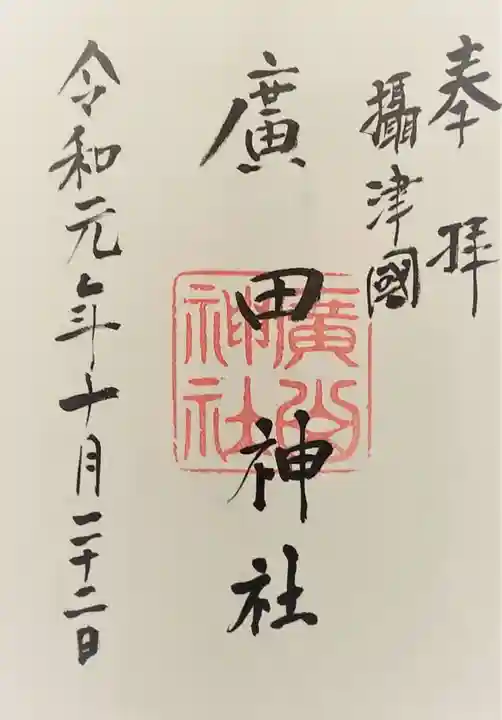 奉拝
攝津國
廣田神社
廣田神社
令和元年十月二十二日